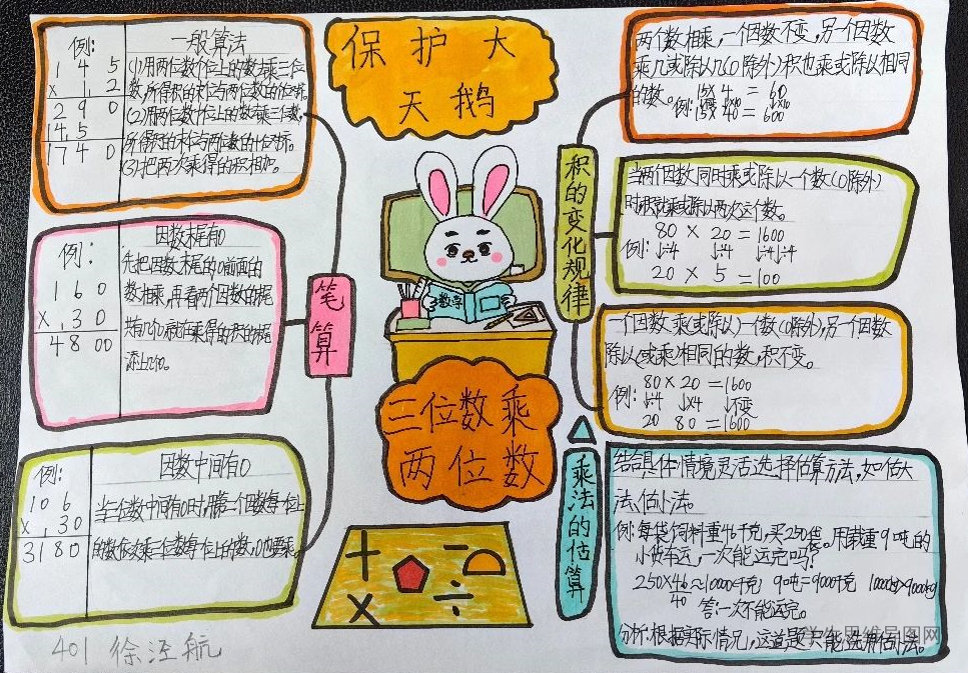 保护大
天鹅
例:
1 4 5
×, 1 2
2 9 0
14,5
174 0
一般算法
(1)用两位数个位上的数去乘三位
数,所得积的末位与两位数的个位对齐。
(2)用两位数十位上的数乘三位数,
所得积的末位与两位数的十位对齐。
(3)把两次乘得的积相加。
例:
1 6 0
×,3 0
4 8 00
因数末尾有0
先把因数末尾的0前面的
数相乘,再看两个因数的末尾
共有几个0就在乘得的积的末尾
添上几个0。
例:
10 6
×,30
3180
因数中间有0
当三位数中间有0时,用第二个因数每一位上
的数依次乘三位数每一位上的数,0也要乘。
笔
算
数学
三位数乘
两位数
+
−
×
÷
积的变化规律
两个数相乘,一个因数不变,另一个因数
乘几或除以几(0除外)积也乘或除以相同
的数。
15×4=60
例: ×10 ×10
15×40=600
当两个因数同时乘或除以一个数(0除外)
时积就乘或除以两次这个数。
80×20=1600
例:↓÷4 ↓÷4 ↓÷4÷4
20×5=100
一个因数乘(或除以)一个数(0除外),另一个因数
除以(或乘)相同的数,积不变。
80×20=1600
例:↓÷4 ↓×4 ↓不变
20 80=1600
乘法的估算
结合具体情境灵活选择估算方法,如估大
法、估小法。
例:每袋饲料重46千克,买250袋。用载重9吨的
小货车运,一次能运完吗?
250×46≈10000千克 9吨=9000千克 10000>9000kg
40
答:一次不能运完。
分析:根据实际情况,这道题只能选用估小法。
401 徐泾航